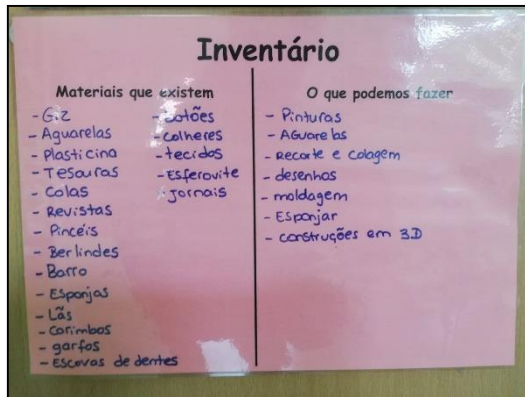 Inventário
Materiais que existem
- Giz
- Aguarelas
- Plasticina
- Tesouras
- Colas
- Revistas
- Pincéis
- Berlindes
- Barro
- Esponjas
- Lãs
- Carimbos
- garfos
- Escovas de dentes
- botões
- colheres
- tecidos
- Esferovite
- Jornais
O que podemos fazer
- Pinturas
- Aguarelas
- Recorte e colagem
- desenhos
- moldagem
- Esponjar
- construções em 3D